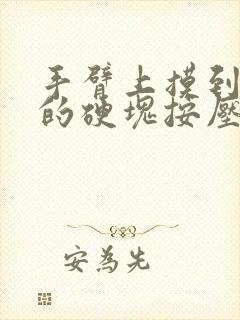 手臂上摸到
的硬塊按壓
安為先